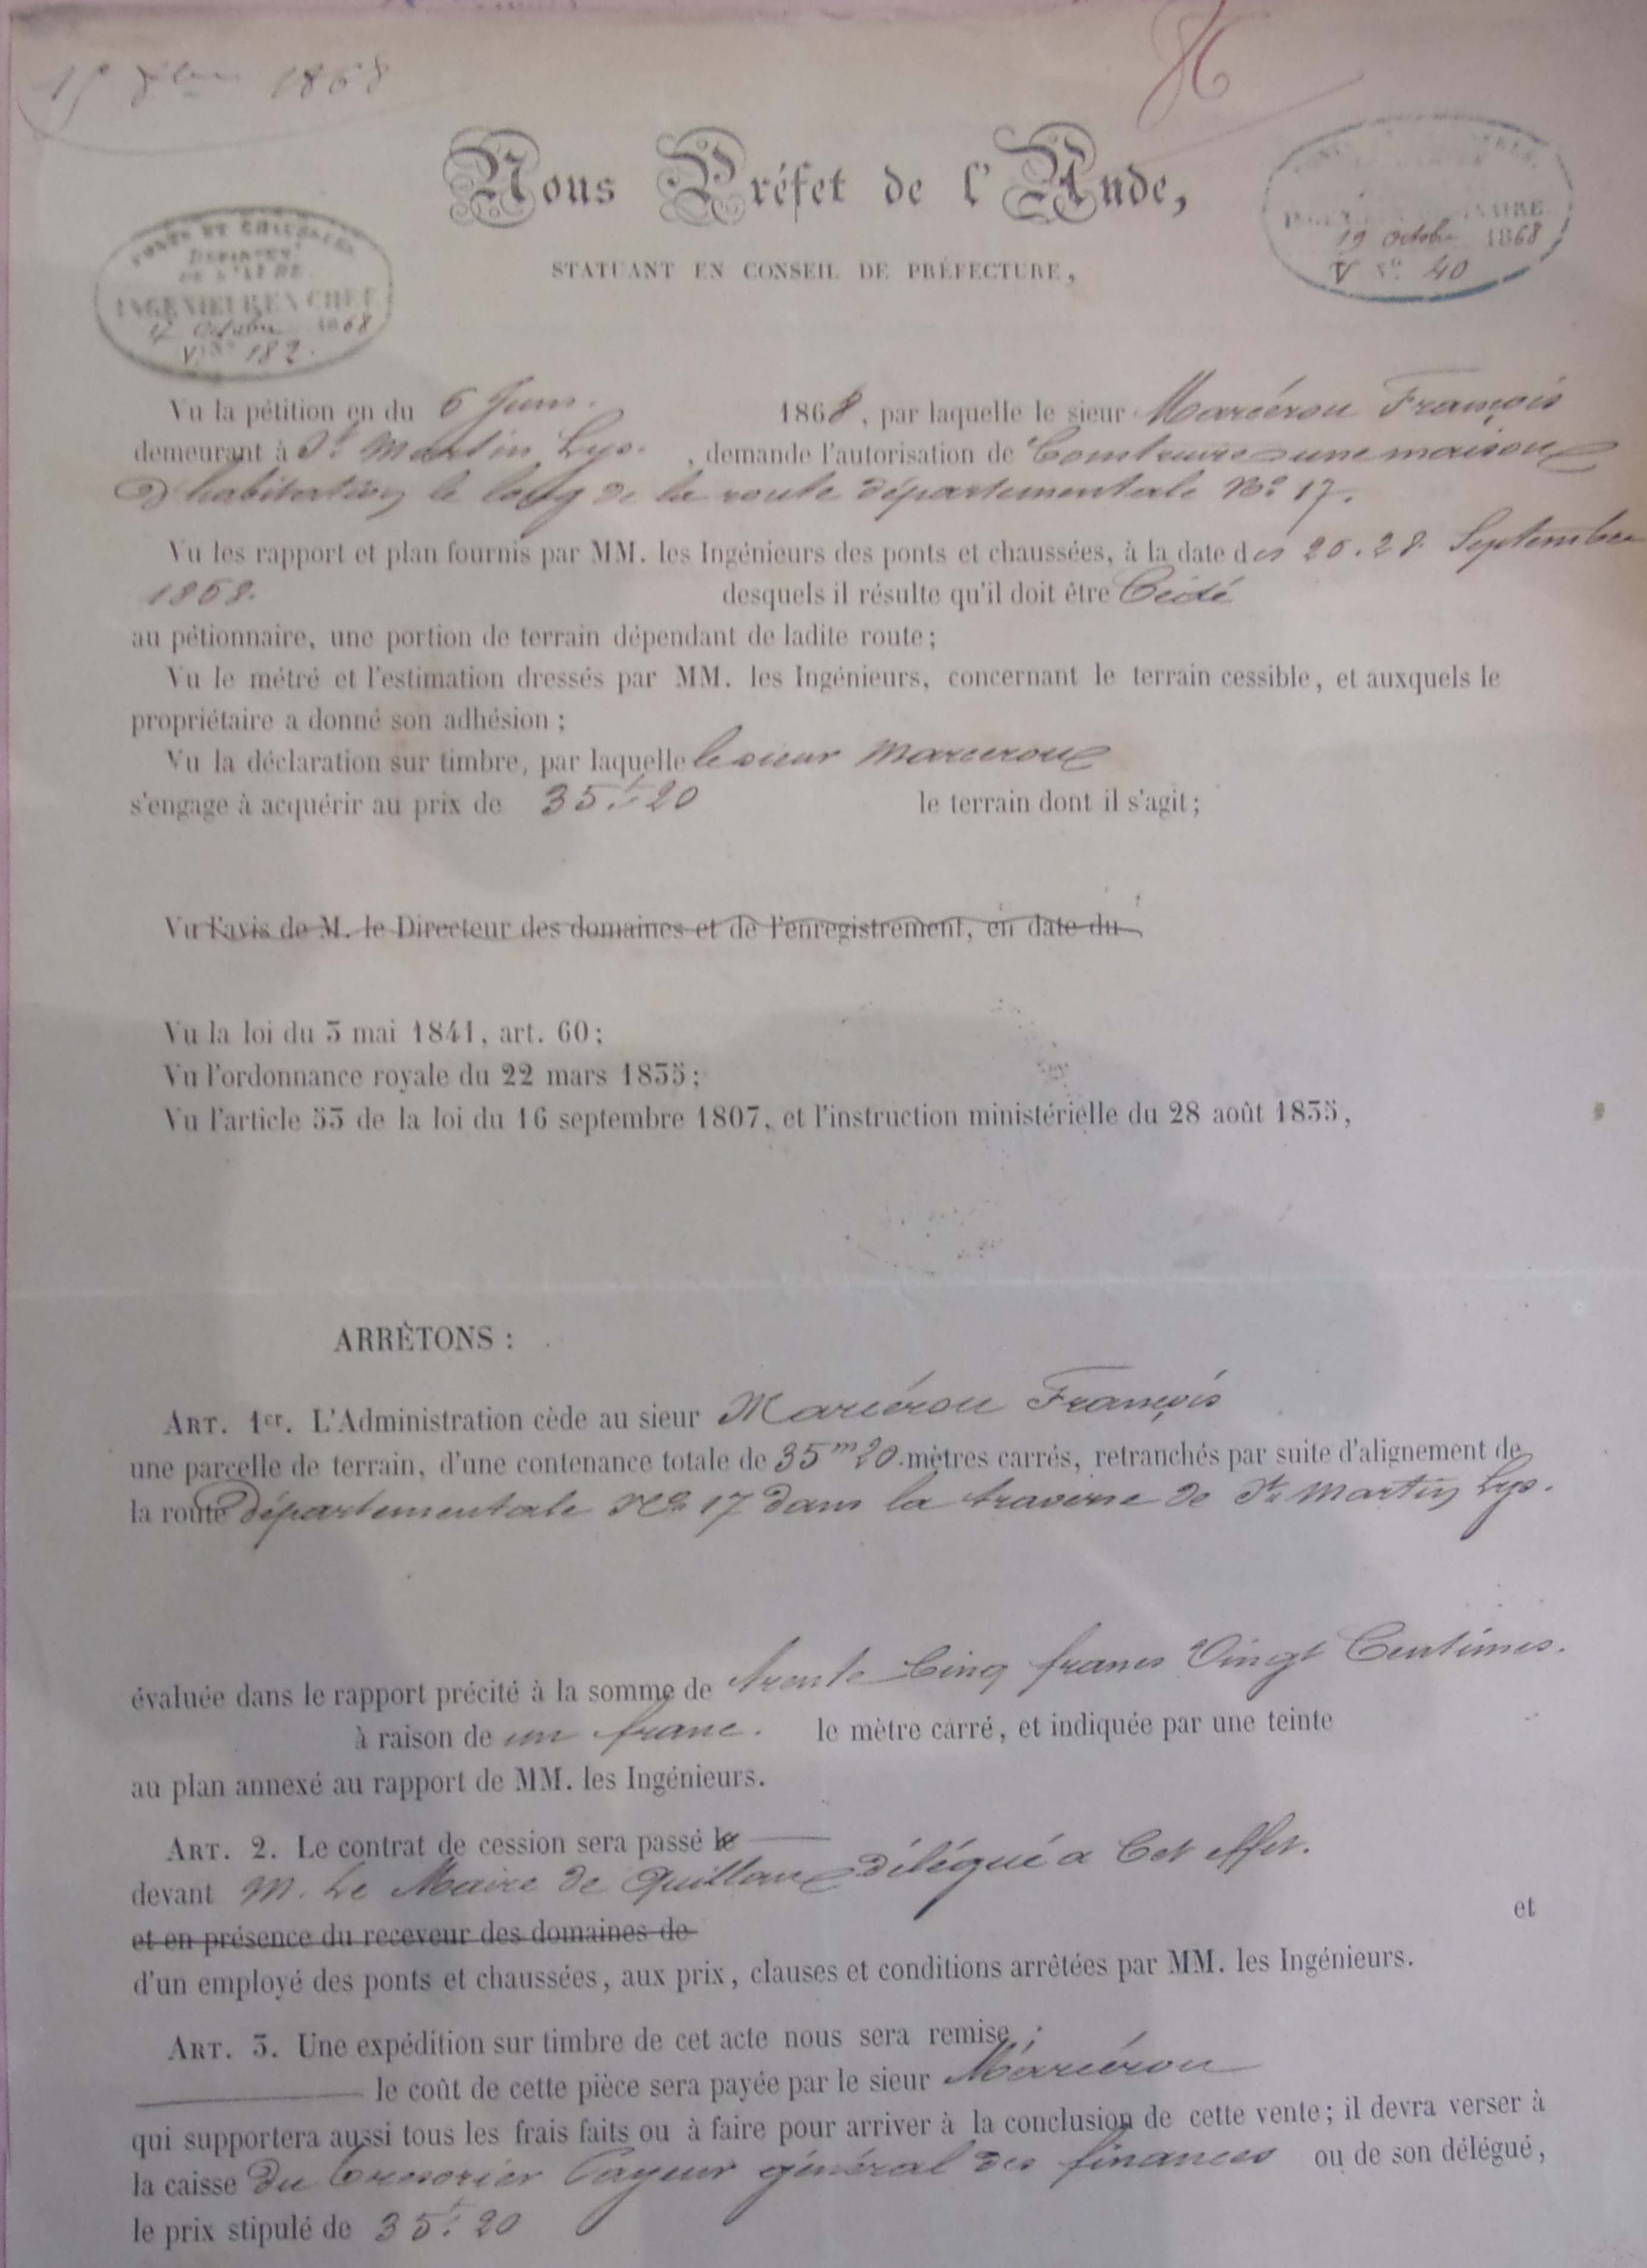 15 8bre 1868
Nous Préfet de l'Aude,
STATUANT EN CONSEIL DE PRÉFECTURE,
PONTS ET CHAUSSÉES
DÉPARTEMT
DE L'AUDE.
INGÉNIEUR EN CHEF
Octobre 1868
V. N° 182.
INGÉNIEUR ORDINAIRE
19 Octobre 1868
V N° 40
Vu la pétition en du 6 Juin. 1868, par laquelle le sieur Marcérou François
demeurant à St Martin Lys. , demande l'autorisation de Construire une maison
d'habitation le long de la route départementale No 17.
Vu les rapport et plan fournis par MM. les Ingénieurs des ponts et chaussées, à la date des 28 Septembre
1868. desquels il résulte qu'il doit être Cédé
au pétionnaire, une portion de terrain dépendant de ladite route;
Vu le métré et l'estimation dressés par MM. les Ingénieurs, concernant le terrain cessible, et auxquels le
propriétaire a donné son adhésion;
Vu la déclaration sur timbre, par laquelle le sieur Marcerou
s'engage à acquérir au prix de 35f.20 le terrain dont il s'agit;
Vu l'avis de M. le Directeur des domaines et de l'enregistrement, en date du
Vu la loi du 3 mai 1841, art. 60;
Vu l'ordonnance royale du 22 mars 1835;
Vu l'article 53 de la loi du 16 septembre 1807, et l'instruction ministérielle du 28 août 1835,
ARRÊTONS :
ART. 1er. L'Administration cède au sieur Marcérou François
une parcelle de terrain, d'une contenance totale de 35m20 mètres carrés, retranchés par suite d'alignement de
la route départementale No 17 dans la traverse de St Martin Lys.
évaluée dans le rapport précité à la somme de trente Cinq francs Vingt Centimes.
à raison de un franc. le mètre carré, et indiquée par une teinte
au plan annexé au rapport de MM. les Ingénieurs.
ART. 2. Le contrat de cession sera passé le
devant M. Le Maire de Quillan délégué a Cet effet.
et en présence du receveur des domaines de et
d'un employé des ponts et chaussées, aux prix, clauses et conditions arrêtées par MM. les Ingénieurs.
ART. 3. Une expédition sur timbre de cet acte nous sera remise ;
le coût de cette pièce sera payée par le sieur Marcérou
qui supportera aussi tous les frais faits ou à faire pour arriver à la conclusion de cette vente; il devra verser à
la caisse du Trésorier Payeur général des finances ou de son délégué,
le prix stipulé de 35f.20